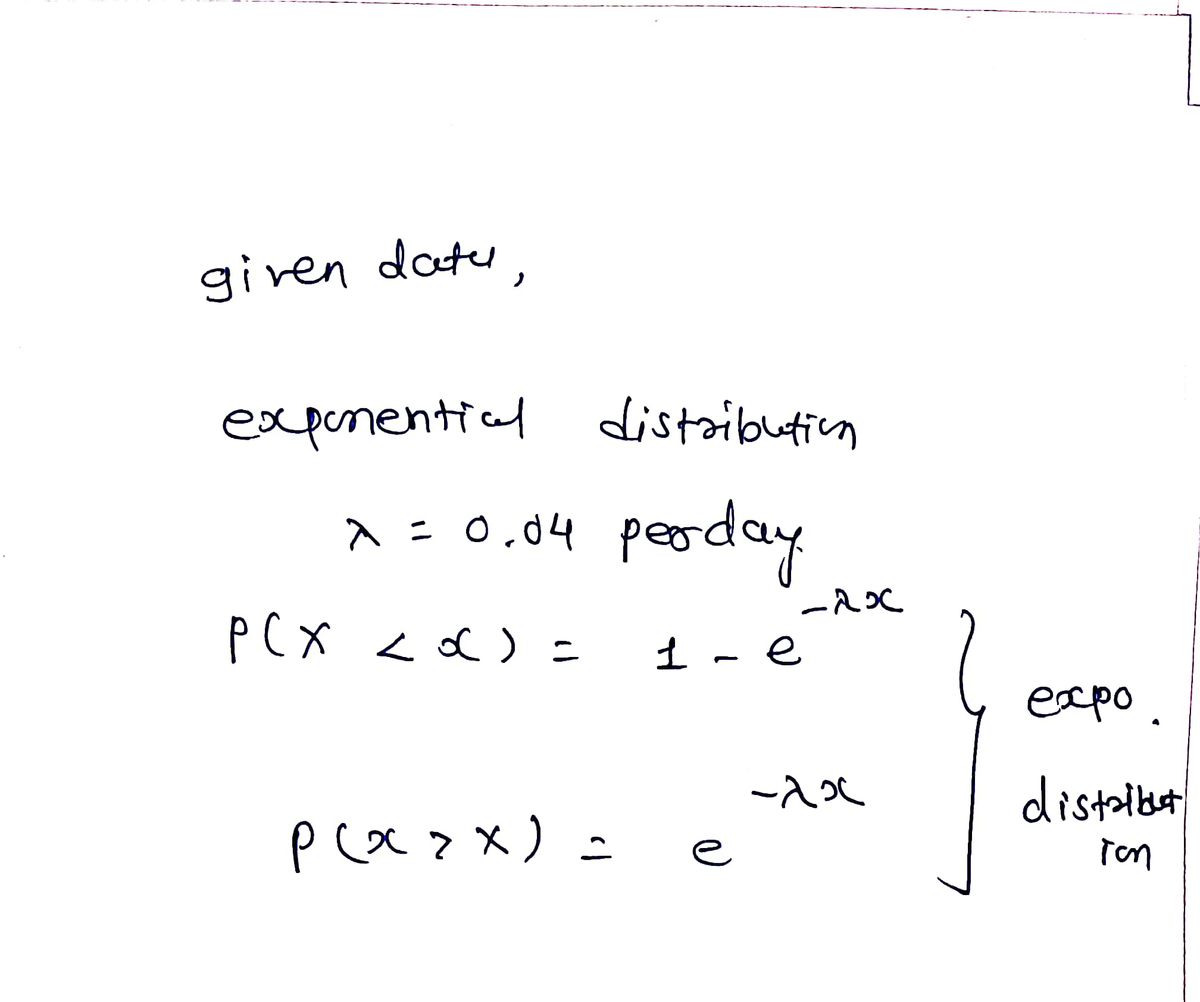 given data,
exponential distribution
λ = 0.04 per day
P(X < x) = 1 - e^{-λx}
P(x > X) = e^{-λx}
expo.
distribut
ion